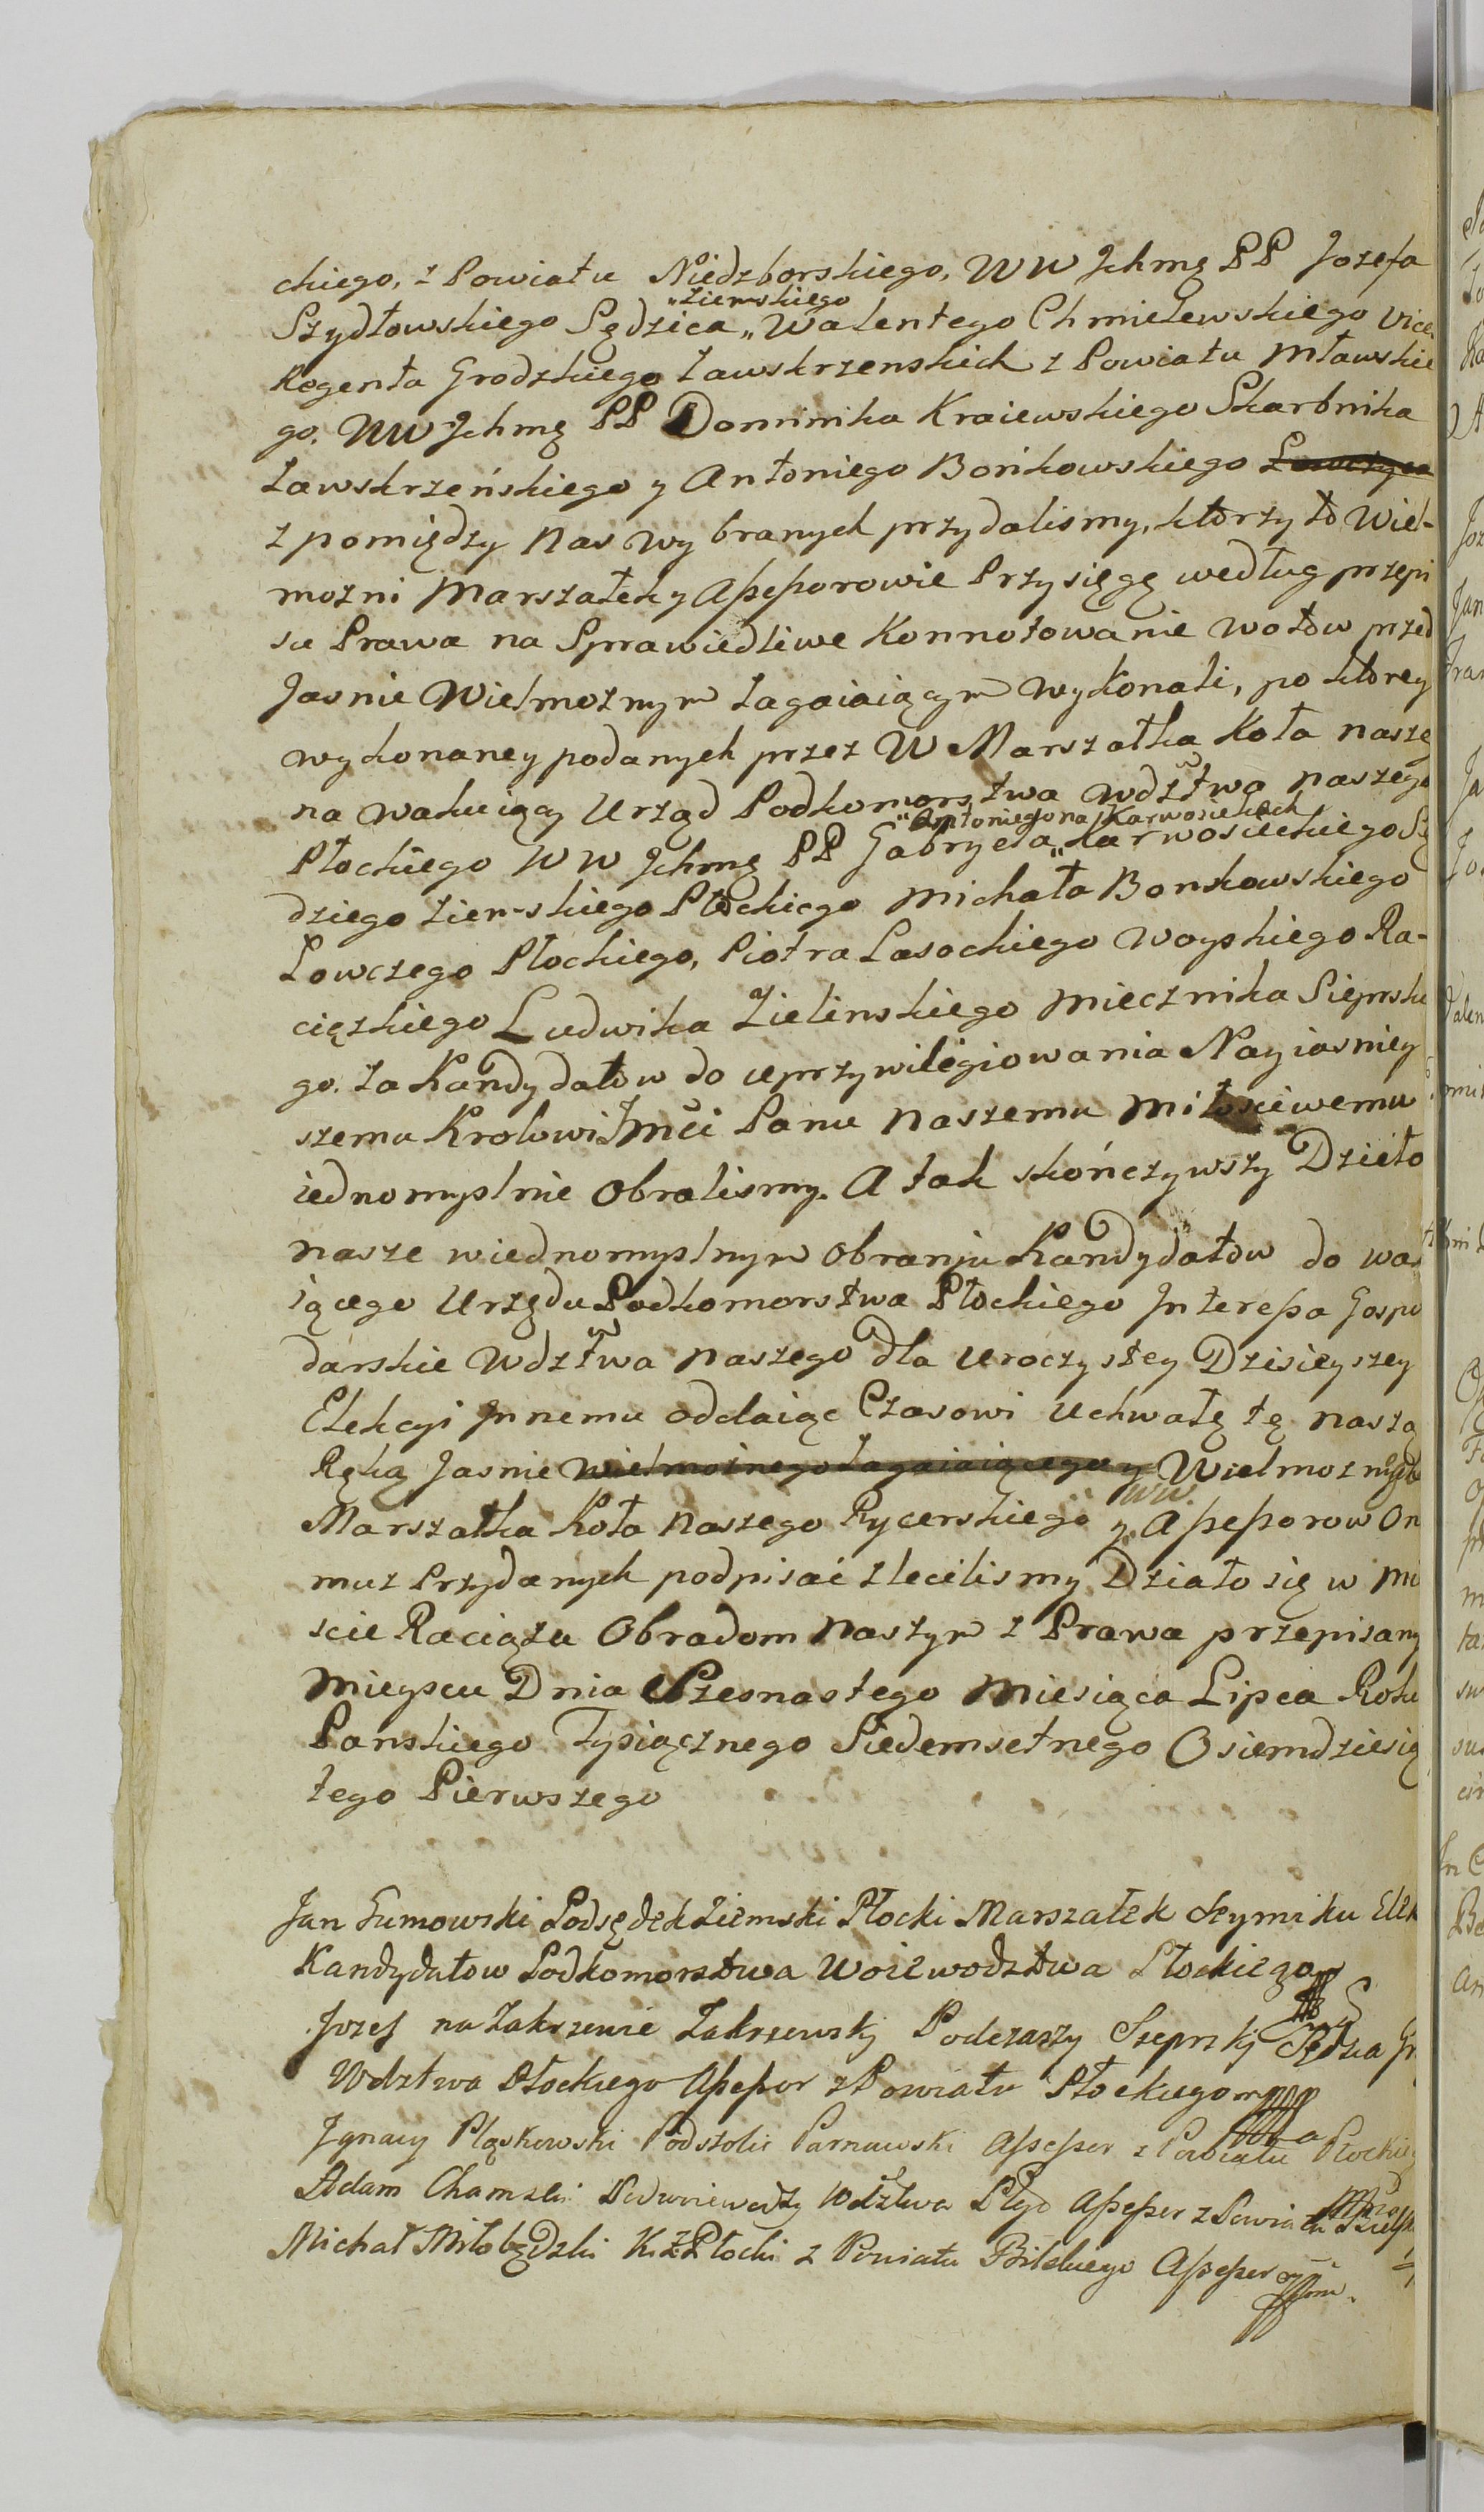 ckiego, z Powiatu Niedzborskiego, WW Jchmę PP Jozefa
Szydłowskiego Sędzica „Ziemskiego„ Walentego Chmielewskiego Vice
Regenta Grodzkiego Zawskrzenskich z Powiatu Mławskie
go. WW Jchmę PP Dominika Kraiewskiego Skarbnika
Zawskrzeńskiego y Antoniego Bońkowskiego
z pomiędzy nas wybranych przydalismy, ktorzy to Wiel-
mozni Marszałek y Assessorowie Przysięgę według przepi
su Prawa na Sprawiedliwe Konnotowanie wotow przed
Jasnie Wielmoznym Zagaiaiącym wykonali, po ktorey
wykonaney podanych przez W Marszałka Koła nasze
na wakuiący Urząd Podkomorstwa Wdztwa naszego
Płockiego WW Jchmę PP Gabryela „Antoniego na Karwosiekach„ Karwosieckiego Sę
dziego Ziemskiego Płockiego Michała Bonkowskiego
Łowczego Płockiego, Piotra Lasockiego Woyskiego Ra-
ciązkiego Ludwika Zielinskiego Miecznika Sieprskie
go. Za Kandydatow do uprzywilegiowania Nayiasniey
szemu Krolowi Jmci Panu Naszemu Miłosciwemu
iednomyslnie obralismy. A tak skończywszy Dzieło
nasze w iednomyslnym obraniu Kandydatow do wak
iącego Urzędu Podkomorstwa Płockiego Jnteressa Gospo
darskie Wdztwa naszego dla uroczystey Dzisieyszey
Elekcyi Jnnemu oddaiąc Czasowi Uchwałę tę naszą
Ręką Jasnie Wielmoznego Zagaiaiącego y Wielmoznych
Marszałka Koła Naszego Rycerskiego y WW. Assessorow On
muz Przydanych podpisać zlecilismy Działo się w Mi
scie Raciązu Obradom naszym z Prawa przepisany
Mieyscu Dnia Szesnastego Miesiąca Lipca Roku
Panskiego Tysiącznego Siedemsetnego Osiemdziesią
tego Pierwszego
Jan Zumowski Podsędek Ziemski Płocki Marszałek Seymiku Elek
Kandydatow Podkomorstwa Woiewodztwa Płockiego
Jozef na Zakrzewie Zakrzewsky Podczaszy Szeprsky Sędzia Gr
Wdztwa Płockiego Assessor z Powiatu Płockiego mp
Jgnacy Pląskowski Podstoli Parnawski Assessor z Powiatu Płockie
Adam Chamski Wdztwa Płgo Assessor z Powiatu
Michał Miłobędzki K.Z. Płocki z Powiatu Bilskiego Assessor mp